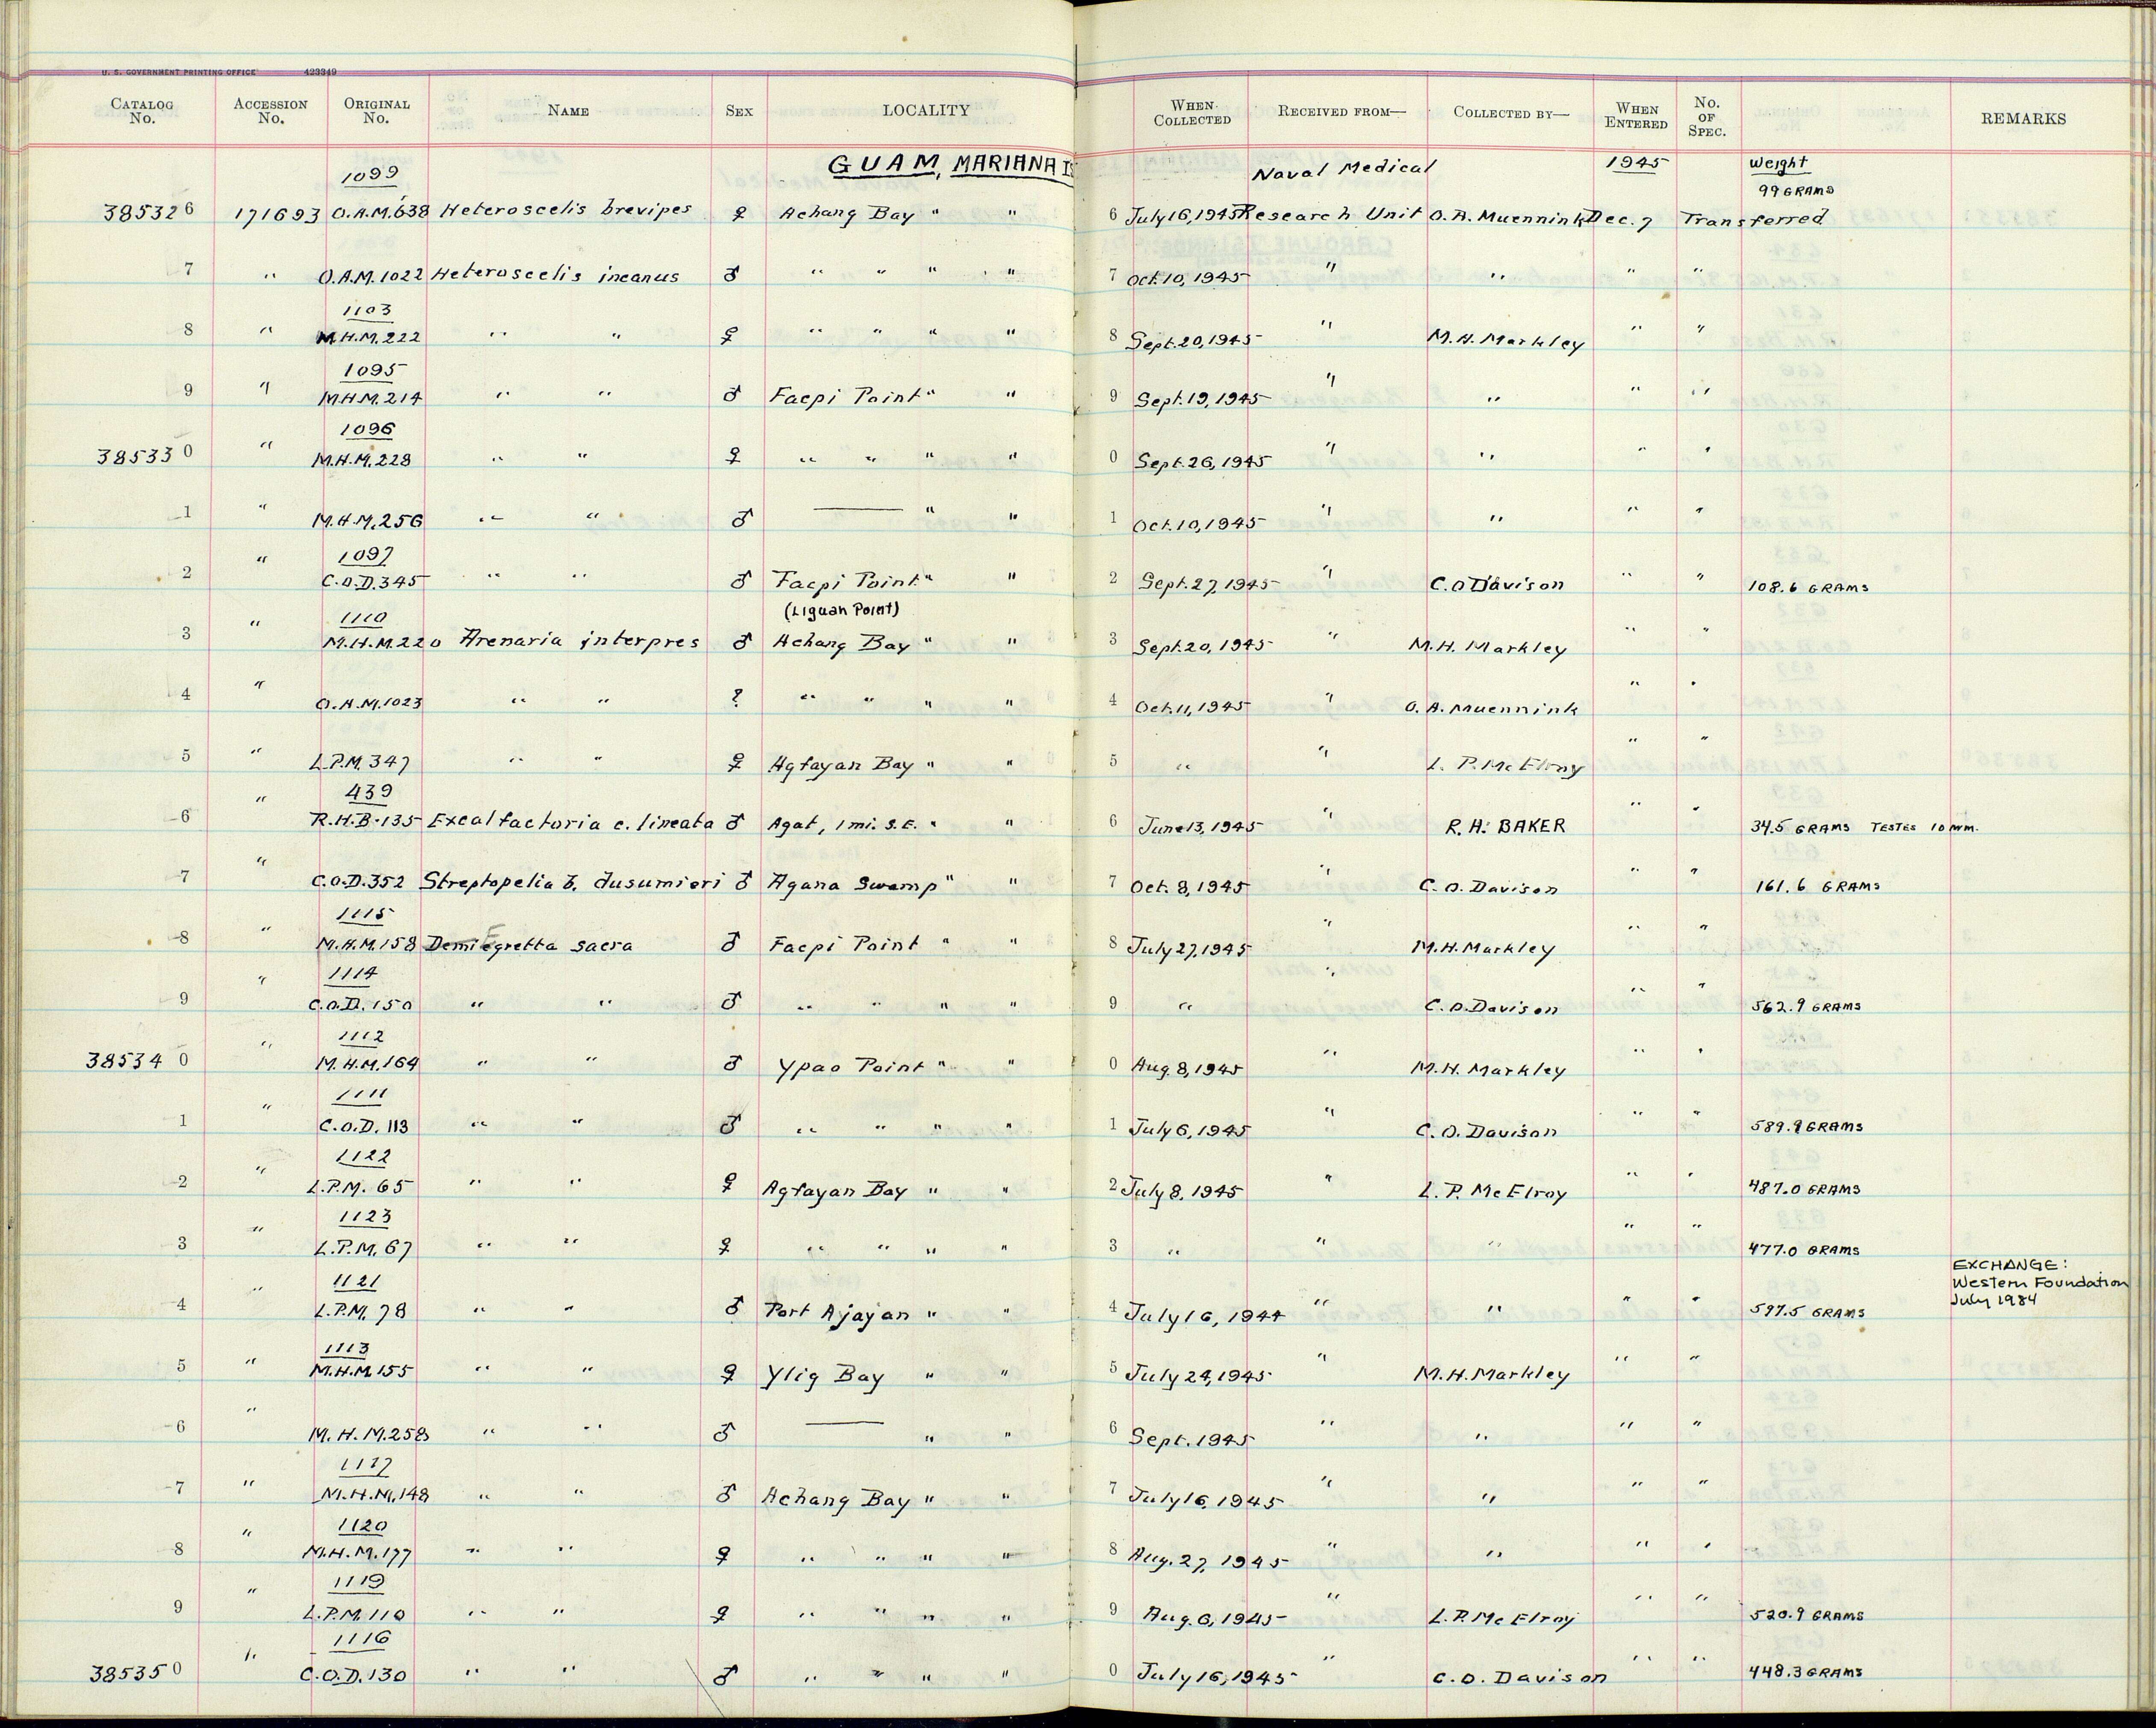 U. S. GOVERNMENT PRINTING OFFICE 423349
CATALOG No. ACCESSION No. ORIGINAL No. NAME SEX LOCALITY WHEN COLLECTED RECEIVED FROM— COLLECTED BY— WHEN ENTERED No. OF SPEC. REMARKS
GUAM, MARIANA IS
1099 Naval Medical 1945 Weight
99 GRAMS
385326 171693 O.A.M.638 Heteroscelis brevipes ♀ Achang Bay " " 6 July 16, 1945 Research Unit O. A. Muennink Dec. 7 Transferred
7 " O.A.M. 1022 Heteroscelis incanus ♂ " " " " 7 Oct. 10, 1945 " " " "
1103
8 " M.H.M. 222 " " ♀ " " " " 8 Sept. 20, 1945 " M. H. Markley " "
1095
9 " M.H.M. 214 " " ♂ Facpi Point " " 9 Sept. 19, 1945 " " " "
1096
385330 " M.H.M. 228 " " ♀ " " " " 0 Sept. 26, 1945 " " " "
1 " M.H.M. 256 " " ♂ — " " 1 Oct. 10, 1945 " " " "
1097
2 " C.O.D. 345 " " ♂ Facpi Point " " 2 Sept. 27, 1945 " C. O Davison " " 108.6 GRAMS
1110 (Liguan Point)
3 " M.H.M. 220 Arenaria interpres ♂ Achang Bay " " 3 Sept. 20, 1945 " M. H. Markley " "
4 " O.A.M. 1023 " " ? " " " " 4 Oct. 11, 1945 " O. A. Muennink " "
5 " L.P.M. 347 " " ♀ Agfayan Bay " " 5 " " L. P. McElroy " "
439
6 " R.H.B. 135 Excalfactoria c. lineata ♂ Agat, 1 mi. S.E. " " 6 June 13, 1945 " R. H. BAKER " " 34.5 GRAMS TESTES 10 MM.
7 " C.O.D. 352 Streptopelia b. dusumieri ♂ Agana Swamp " " 7 Oct. 8, 1945 " C. O. Davison " " 161.6 GRAMS
1115
8 " M.H.M. 158 Demiegretta sacra ♂ Facpi Point " " 8 July 27, 1945 " M. H. Markley " "
1114
9 " C.O.D. 150 " " ♂ " " " " 9 " " C. O. Davison " " 562.9 GRAMS
1112
385340 " M.H.M. 164 " " ♂ Ypao Point " " 0 Aug. 8, 1945 " M. H. Markley " "
1111
1 " C.O.D. 113 " " ♂ " " " " 1 July 6, 1945 " C. O. Davison " " 589.9 GRAMS
1122
2 " L.P.M. 65 " " ♀ Agfayan Bay " " 2 July 8, 1945 " L. P. McElroy " " 487.0 GRAMS
1123
3 " L.P.M. 67 " " ♀ " " " " 3 " " " " " 477.0 GRAMS
EXCHANGE:
Western Foundation
July 1984
1121
4 " L.P.M. 78 " " ♂ Port Ajayan " " 4 July 16, 1944 " " " " 597.5 GRAMS
1113
5 " M.H.M. 155 " " ♀ Ylig Bay " " 5 July 24, 1945 " M. H. Markley " "
6 " M.H.M. 258 " " ♂ — " " 6 Sept. 1945 " " " "
1117
7 " M.H.M. 148 " " ♂ Achang Bay " " 7 July 16, 1945 " " " "
1120
8 " M.H.M. 177 " " ♀ " " " " 8 Aug. 27, 1945 " " " "
1119
9 " L.P.M. 110 " " ♀ " " " " 9 Aug. 6, 1945 " L. P. McElroy " " 520.9 GRAMS
1116
385350 " C.O.D. 130 " " ♂ " " " " 0 July 16, 1945 " C. O. Davison " " 448.3 GRAMS